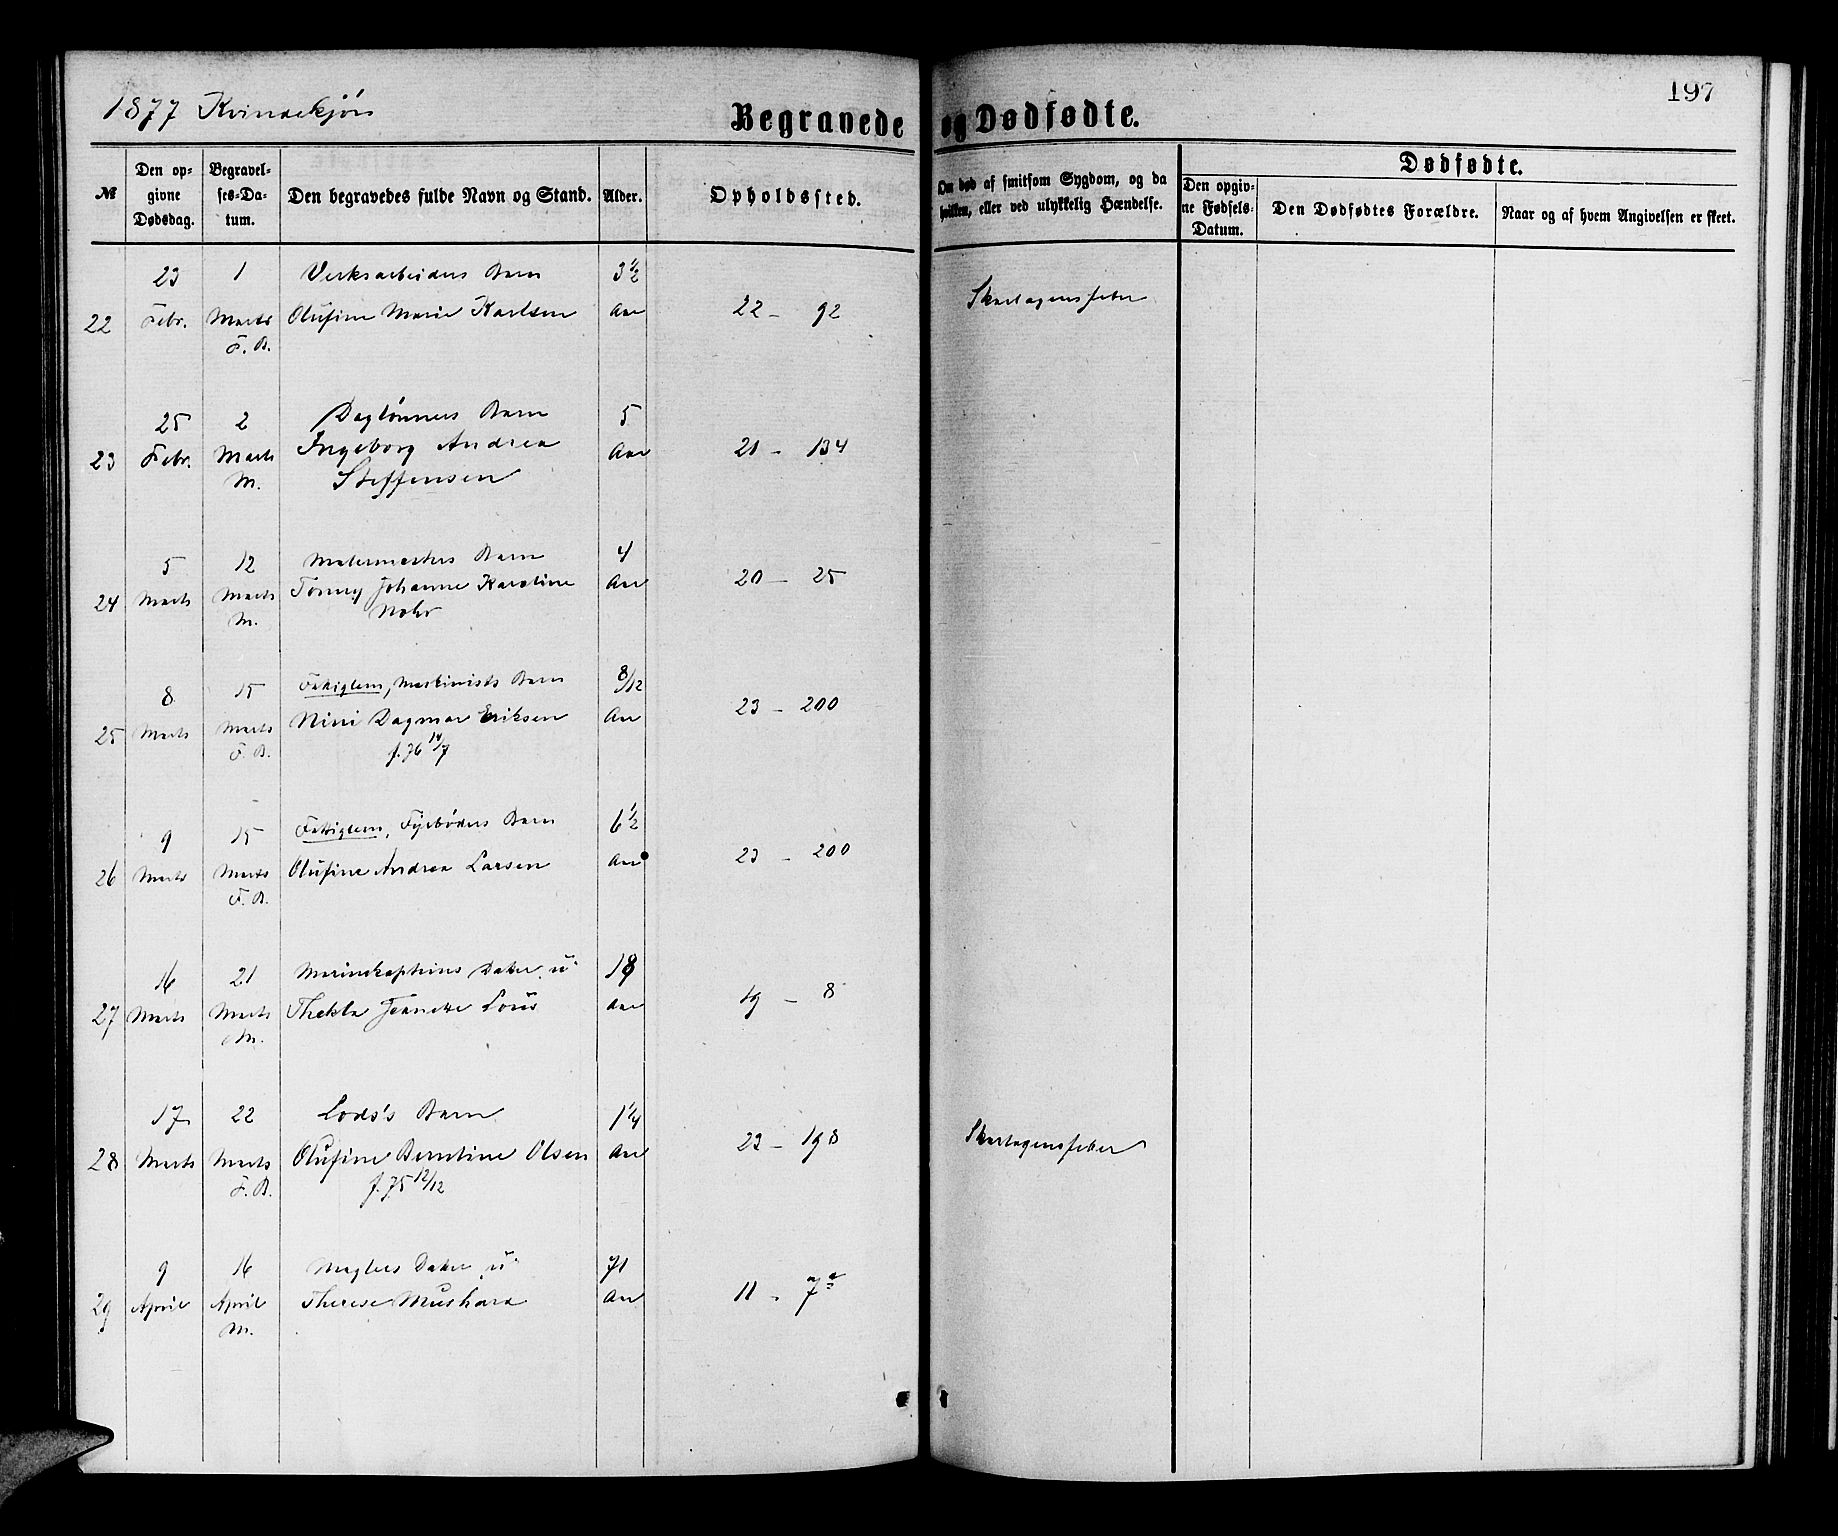 1877 Kvindekjøn
197
Begravede og Dødfødte.
№
Den op-
givne
Dødsdag.
Begravel-
ses-Da-
tum.
Den begravedes fulde Navn og Stand.
Alder.
Opholdssted.
Om død af smitsom Sygdom, og da
hvilken, eller ved ulykkelig Hændelse.
Dødfødte.
Den opgiv-
ne Fødsels-
Datum.
Den Dødfødtes Forældre.
Naar og af hvem Angivelsen er skeet.
23 1 Verksarbeiders Barn 3 1/2
22 Febr. Marts Olufine Marie Karlsen Aar 22 - 92 Skarlagensfeber
F. B.
25 2 Daglønners Barn 5
23 Febr. Marts Ingeborg Andrea Aar 21 - 134
M. Steffensen
5 12 Malermesters Barn 4
24 Marts Marts Johanne Karoline Aar 20 - 25
M.
8 15 Fattiglem, Maskinists Barn 8/12
25 Marts Marts Nini Dagmar Eriksen Aar 23 - 200
F. B. f. 76 14/7
9 15 Fattiglem, Fyrbøders Barn 6 1/2
26 Marts Marts Olufine Andrea Larsen Aar 23 - 200
F. B.
16 21 Marinekapteins Datter, u 18
27 Marts Marts Thekla Jeanette Aar 19 - 8
M.
17 22 Lods's Barn 1 1/4
28 Marts Marts Olufine Berntine Olsen Aar 23 - 198 Skarlagensfeber
F. B. f. 75 12/12
9 16 Mæglers Datter, u 71
29 April April Therese Aar 11 - 7 a
M.